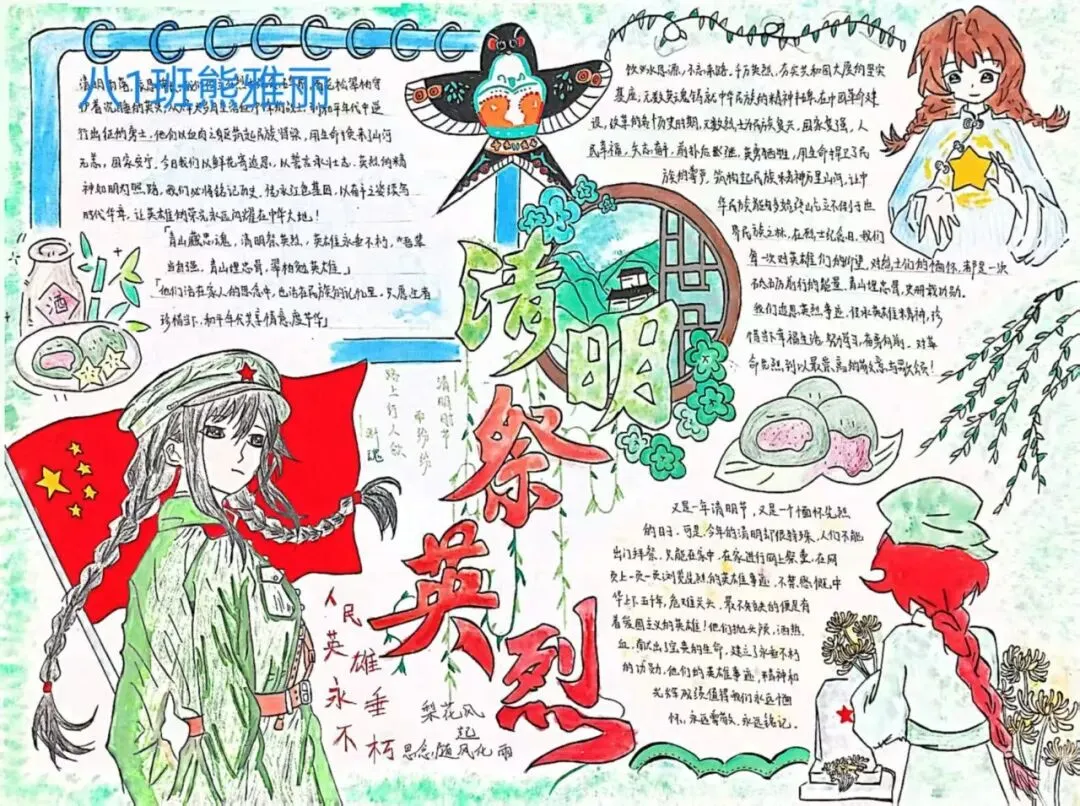 八1班熊雅丽
行出征的勇士，他们以血肉之躯筑起民族脊梁，用生命换来山河
无恙，国家安宁，今日我们以鲜花寄追思，以誓言承壮志，英烈的精
神如明灯照路，我们必将铭记历史，传承红色基因，以奋斗之姿续写
时代华章，让英雄的荣光永远闪耀在中华大地！
「青山藏忠魂，清明祭英烈，英雄永垂不朽，
当自强，青山埋忠骨，翠柏勉英雄。」
「他们活在亲人的思念中，也活在民族的记忆里，只愿过者
珍惜当下，和平年代共享情意，度年华」
酒
饮水思源，不忘来路，千万英烈，夯实共和国大厦的坚实
基座，无数英魂铸就中华民族的精神丰碑，在中国革命建
设、改革的各个历史时期，无数烈士为民族复兴，国家富强，人
民幸福，矢志奋斗，前扑后继，英勇牺牲，用生命捍卫了民
族的尊严，筑构起民族精神万里山河，让中
华民族能
界民族之林，在烈士纪念日，我们
每一次对英雄们的仰望，对烈士们的缅怀，都是一次
砥砺前行的能量，青山埋忠骨，史册载功勋。
我们追思英烈事迹，传承英雄精神，珍
惜当下幸福生活，努力学习，奋勇向前，对革
命先烈致以最崇高的敬意与歌颂！
清明
祭
英
烈
清明时节
雨纷纷
路上行人欲
断魂
人民
英雄
永垂
不朽
梨花风
起
思念随风化雨
又是一年清明节，又是一个缅怀先烈
的日子，可是，今年的清明却很特殊，人们不能
出门拜祭，只能在家中，在家进行网上祭奠，在网
页上一页一页浏览先烈的英雄事迹，不禁感慨，中
华上下五千年，危难关头，最不缺的便是有
着爱国主义的英雄！他们抛头颅，洒热
血，献出了宝贵的生命，建立了永垂不朽
的功勋，他们的英雄事迹，精神和
光辉形象值得我们永远缅
怀，永远尊敬，永远铭记。